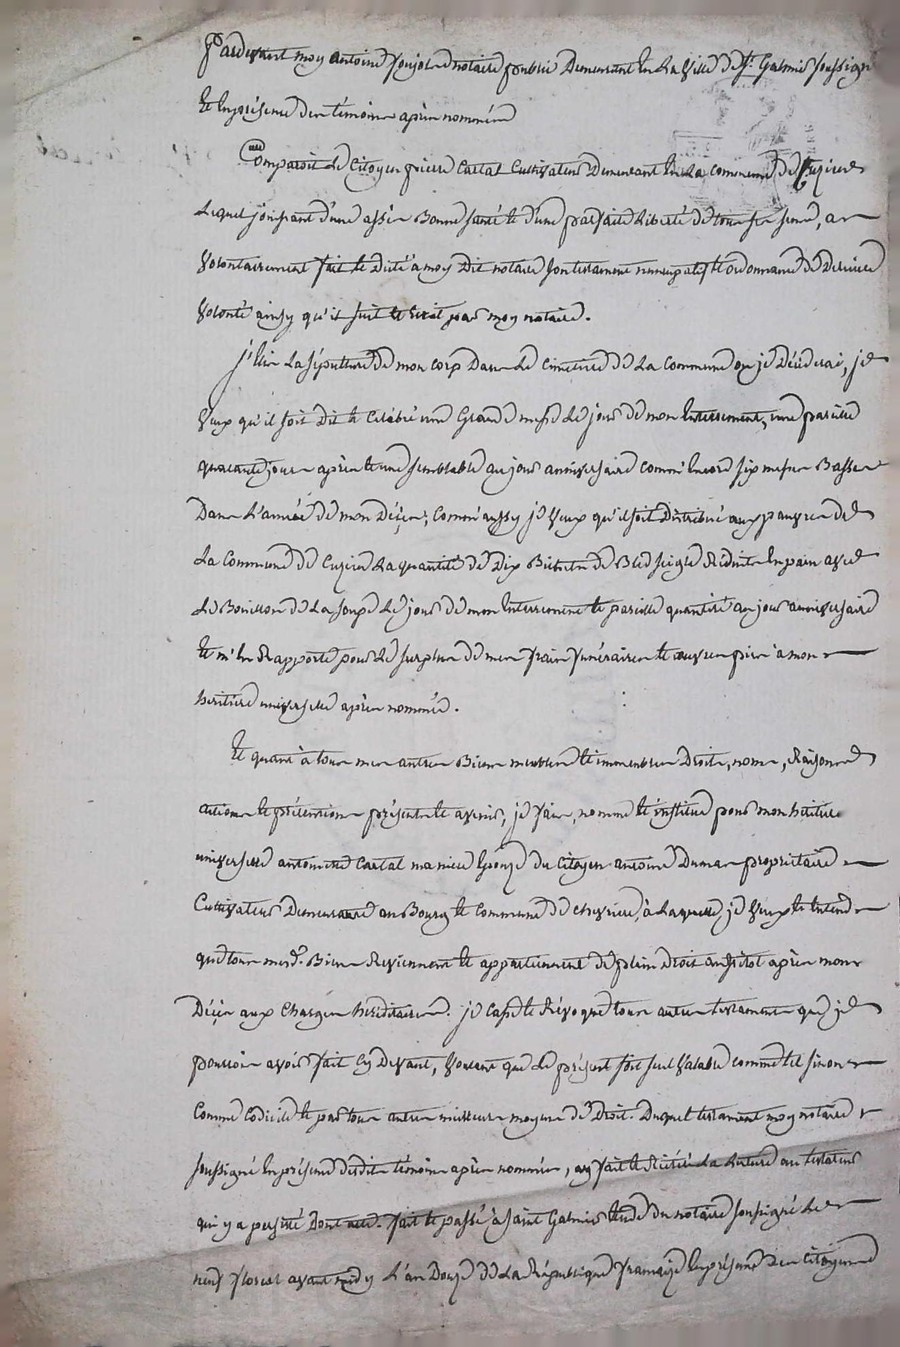 Pardevant moy antoine notaire public Demeurant En La Ville de St. Galmier soussigné
Et En présence des témoins après nommés
Comparoit Le Citoyen pierre Cartal Cultivateur Demeurant En La Commune de Cuzieu
Lequel jouissant d'une asses Bonne santé et d'une parfaite Liberté de tous ses sens, a
Volontairement fait et Dicté a moy Dit notaire son testament nuncupatif et ordonnance de Derniere
Volonté ainsy qu'il suit et Ecrit par moy notaire.
j'Elis La sépulture de mon corp Dans Le Cimetiere de La Commune ou je Décéderai, je
Veux qu'il soit Dit et Célébré une Grande messe Le jour de mon Enterrement, une pareille
quarante jours après et une semblable au jour anniversaire comme Encore six messes Basses
Dans L'année de mon Décès; Comme aussy je Veux qu'il soit Distribué aux pauvres de
La Commune de Cuzieu La quantité de Dix Bichets de Bled seigle Réduits En pain avec
Le Bouillon de La soupe Le jour de mon Enterrement et pareille quantité au jour anniversaire
Et m'En Rapporte pour Le surplus de mes frais funéraires et œuvres pies à mon
héritiere universelle après nommée.
Et quant à tous mes autres Biens meubles et immeubles Droits, noms, Raisons
actions et prétentions présents et avenir, je fais, nomme et institue pour mon héritiere
universelle antoinette Cartal ma niece Epouse du Citoyen antoine Dumas propriétaire
Cultivateur Demeurant au Bourg et Commune de Chevrieres, à Laquelle je Veux et Entend
que tous mesd. Biens Reviennent et appartiennent de plein Droit aussitot après mon
Décès aux Charges héréditaires. je Casse et Révoque tous autres testaments que je
pourrois avoir fait Cy Devant, Voulant que Le présent soit seul Valable comme tel sinon
Comme Codicile et par tous autres meilleurs moyens de Droit. Duquel testament moy notaire
soussigné En présence desdits témoins après nommés, ay fait et Réitéré La Lecture au testateur
qui y a persisté Dont acte. fait et passé à Saint Galmier Etude du notaire soussigné Le
neuf floreal avant midy L'an Douze de La République française En présence des Citoyens